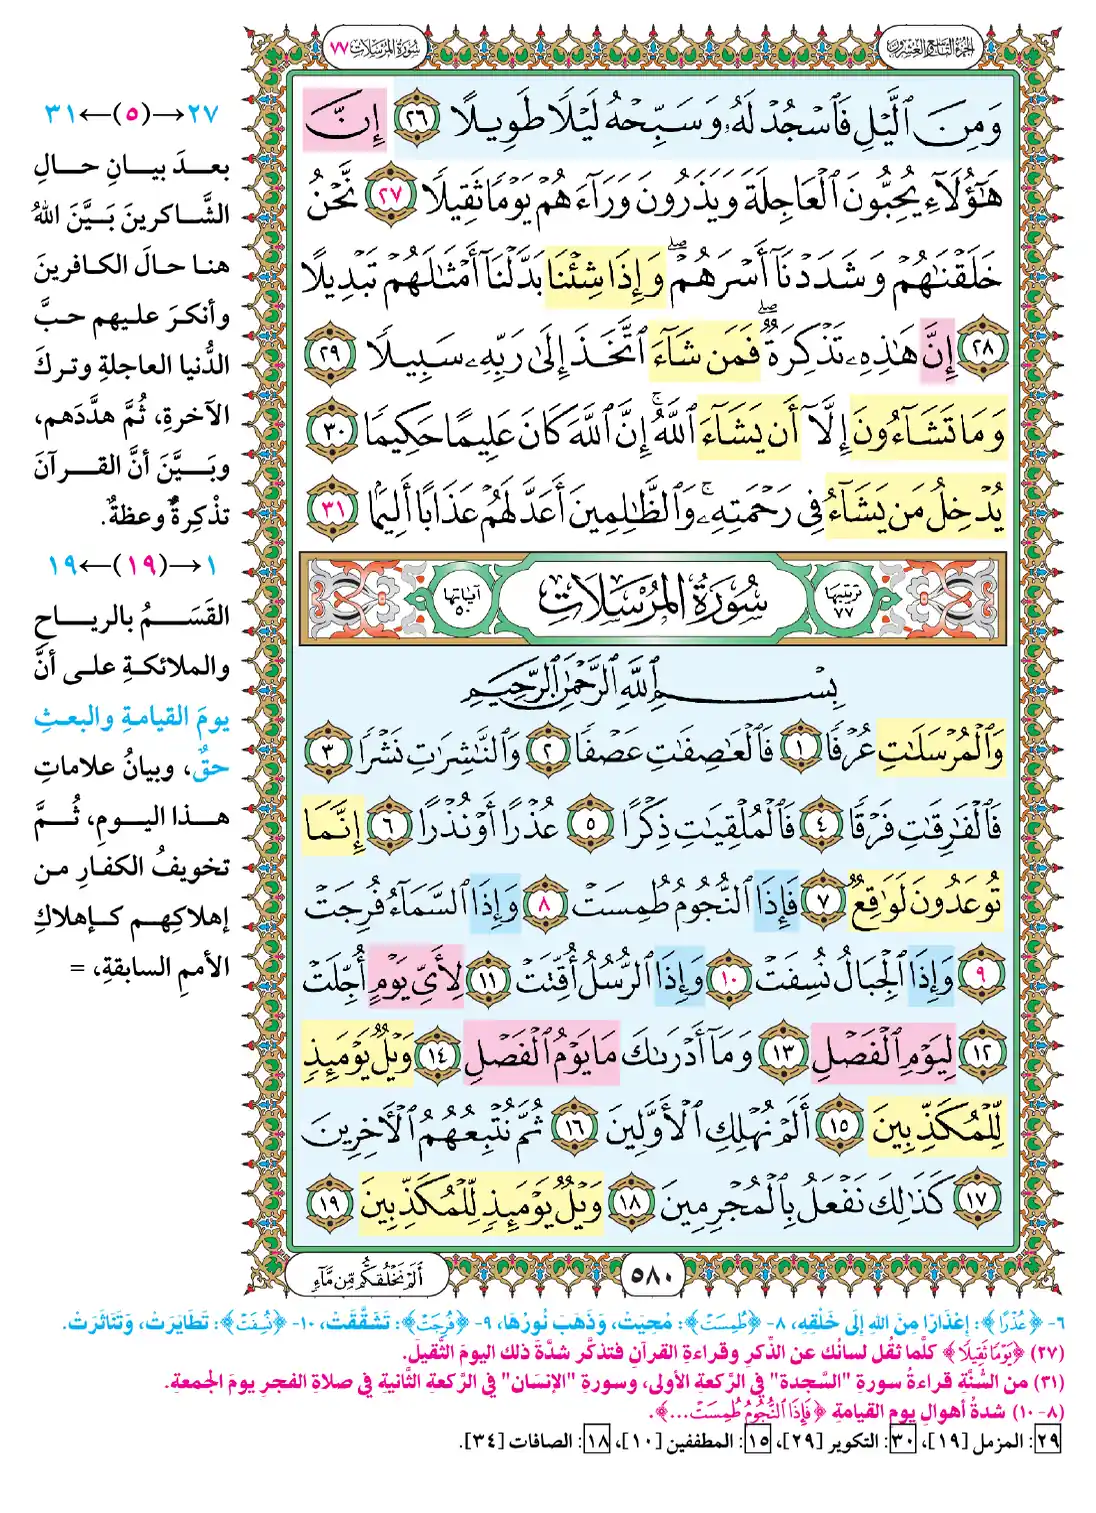 الجزء التاسع والعشرون
سورة المرسلات ٧٧
وَمِنَ ٱلَّيۡلِ فَٱسۡجُدۡ لَهُۥ وَسَبِّحۡهُ لَيۡلٗا طَوِيلًا ٢٦ إِنَّ
هَٰٓؤُلَآءِ يُحِبُّونَ ٱلۡعَاجِلَةَ وَيَذَرُونَ وَرَآءَهُمۡ يَوۡمٗا ثَقِيلٗا ٢٧ نَّحۡنُ
خَلَقۡنَٰهُمۡ وَشَدَدۡنَآ أَسۡرَهُمۡۖ وَإِذَا شِئۡنَا بَدَّلۡنَآ أَمۡثَٰلَهُمۡ تَبۡدِيلًا
٢٨ إِنَّ هَٰذِهِۦ تَذۡكِرَةٞۖ فَمَن شَآءَ ٱتَّخَذَ إِلَىٰ رَبِّهِۦ سَبِيلٗا ٢٩
وَمَا تَشَآءُونَ إِلَّآ أَن يَشَآءَ ٱللَّهُۚ إِنَّ ٱللَّهَ كَانَ عَلِيمًا حَكِيمٗا ٣٠
يُدۡخِلُ مَن يَشَآءُ فِي رَحۡمَتِهِۦۚ وَٱلظَّٰلِمِينَ أَعَدَّ لَهُمۡ عَذَابًا أَلِيمَۢا ٣١
ترتيبها ٧٧ سُورَةُ المُرۡسَلَات آياتها ٥٠
بِسۡمِ ٱللَّهِ ٱلرَّحۡمَٰنِ ٱلرَّحِيمِ
وَٱلۡمُرۡسَلَٰتِ عُرۡفٗا ١ فَٱلۡعَٰصِفَٰتِ عَصۡفٗا ٢ وَٱلنَّٰشِرَٰتِ نَشۡرٗا ٣
فَٱلۡفَٰرِقَٰتِ فَرۡقٗا ٤ فَٱلۡمُلۡقِيَٰتِ ذِكۡرًا ٥ عُذۡرًا أَوۡ نُذۡرًا ٦ إِنَّمَا
تُوعَدُونَ لَوَٰقِعٞ ٧ فَإِذَا ٱلنُّجُومُ طُمِسَتۡ ٨ وَإِذَا ٱلسَّمَآءُ فُرِجَتۡ
٩ وَإِذَا ٱلۡجِبَالُ نُسِفَتۡ ١٠ وَإِذَا ٱلرُّسُلُ أُقِّتَتۡ ١١ لِأَيِّ يَوۡمٍ أُجِّلَتۡ
١٢ لِيَوۡمِ ٱلۡفَصۡلِ ١٣ وَمَآ أَدۡرَىٰكَ مَا يَوۡمُ ٱلۡفَصۡلِ ١٤ وَيۡلٞ يَوۡمَئِذٖ
لِّلۡمُكَذِّبِينَ ١٥ أَلَمۡ نُهۡلِكِ ٱلۡأَوَّلِينَ ١٦ ثُمَّ نُتۡبِعُهُمُ ٱلۡأٓخِرِينَ
١٧ كَذَٰلِكَ نَفۡعَلُ بِٱلۡمُجۡرِمِينَ ١٨ وَيۡلٞ يَوۡمَئِذٖ لِّلۡمُكَذِّبِينَ ١٩
٥٨٠
أَلَمۡ نَخۡلُقكُّم مِّن مَّآءٖ
٢٧→(٥)←٣١
بعدَ بيانِ حالِ
الشَّاكرينَ بَيَّنَ اللهُ
هنا حالَ الكافرينَ
وأنكرَ عليهم حبَّ
الدُّنيا العاجلةِ وتركَ
الآخرةِ، ثُمَّ هدَّدَهم،
وبَيَّنَ أنَّ القرآنَ
تذْكِرةٌ وعظةٌ.
١→(١٩)←١٩
القَسَمُ بالرياحِ
والملائكةِ على أنَّ
يومَ القيامةِ والبعثِ
حقٌ، وبيانُ علاماتِ
هذا اليومِ، ثُمَّ
تخويفُ الكفارِ من
إهلاكِهم كإهلاكِ
الأممِ السابقةِ، =
٦- ﴿عُذْرًا﴾: إِعْذَارًا مِنَ اللهِ إِلَى خَلْقِهِ، ٨- ﴿طُمِسَتْ﴾: مُحِيَتْ، وَذَهَبَ نُورُهَا، ٩- ﴿فُرِجَتْ﴾: تَشَقَّقَتْ، ١٠- ﴿نُسِفَتْ﴾: تَطَايَرَتْ، وَتَنَاثَرَتْ.
(٢٧) ﴿يَوْمًا ثَقِيلًا﴾ كلَّما ثقُل لسانُك عن الذِّكرِ وقراءةِ القرآنِ فتذكَّر شدَّةَ ذلك اليومَ الثَّقيلَ.
(٣١) من السُّنَّةِ قراءةُ سورةِ "السَّجدة" في الرَّكعةِ الأولى، وسورةِ "الإنسَان" في الرَّكعةِ الثَّانيةِ في صلاةِ الفجرِ يومَ الجمعةِ.
(٨-١٠) شدةُ أهوالِ يومِ القيامةِ ﴿فَإِذَا ٱلنُّجُومُ طُمِسَتْ...﴾.
٢٩: المزمل [١٩]، ٣٠: التكوير [٢٩]، ١٥: المطففين [١٠]، ١٨: الصافات [٣٤].